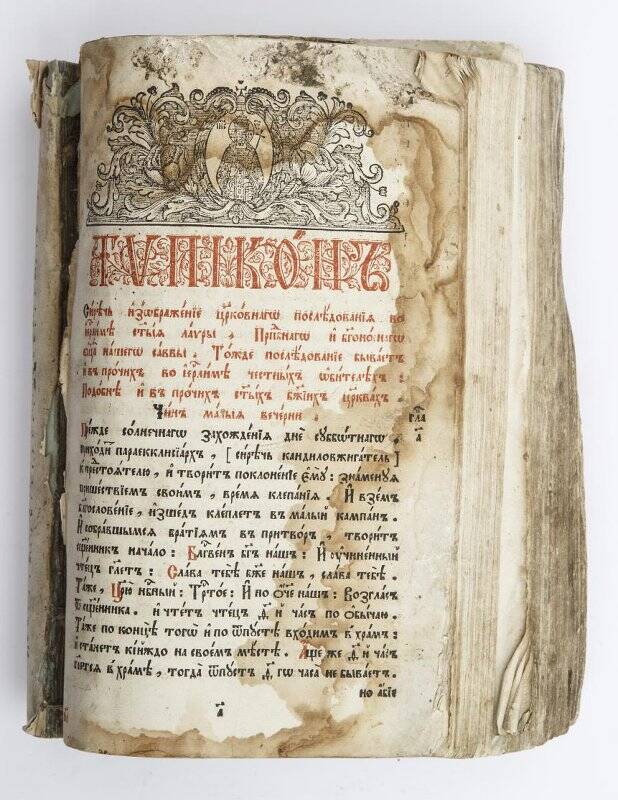 ТѴПІКО́НЪ
Сирѣчь изѡбраже́нїе цр҃ко́внагѡ послѣ́дованїѧ во
іер҃лимѣ ст҃ыѧ ла́ѵры, Прпⷣбнагѡ и҆ бг҃оно́снагѡ
ѻ҆ц҃а̀ на́шегѡ са́ввы. То́жде послѣ́дованїе быва́етъ
и҆ въ про́чихъ во іер҃лимѣ че́стныхъ ѻ҆би́телехъ:
Подо́бнѣ и҆ въ про́чихъ ст҃ы́хъ бж҃їихъ цр҃квахъ.
Чи́нъ ма́лыѧ вече́рни.
гла
а҃
Пре́жде со́лнечнагѡ захожде́нїѧ днѐ сꙋббѡ́тнагѡ,
прихо́дитъ параекклисїа́рхъ, [сирѣ́чь кандиловжига́тель]
къ престоѧ́телю, и҆ твори́тъ поклоне́нїе є҆мꙋ̀: зна́менꙋѧ
прише́ствїемъ свои́мъ, вре́мѧ клепа́нїѧ. И҆ взе́мъ
благослове́нїе, и҆зше́дъ клепле́тъ въ ма́лый кампа́нъ.
И҆ собра́вшымсѧ бра́тїѧмъ въ притво́ръ, твори́тъ
сщ҃е́нникъ нача́ло: Блгⷭ҇ве́нъ бг҃ъ на́шъ: И҆ ѹ҆чине́нный
чте́цъ гл҃етъ: Сла́ва тебѣ̀ бж҃е на́шъ, сла́ва тебѣ̀.
Та́же, Цр҃ю̀ нбⷭ҇ный: Трⷭ҇то́е: И҆ по ѻ҆́ч҃е на́шъ: Во́згласъ
ѿ сщ҃е́нника. и҆ чте́тъ чте́цъ д҃,й ча́съ по ѻ҆бы́чаю.
Та́же по концѣ̀ тогѡ̀ и҆ по ѿпꙋ́стѣ вхо́димъ въ хра́мъ:
и҆ ста́нетъ кі́йждо на свое́мъ мѣ́стѣ. А҆́ще же д҃,й ча́съ
чте́тсѧ въ хра́мѣ, тогда̀ ѿпꙋ́стъ д҃,гѡ часа̀ не быва́етъ.
но а҆́бїе
а҃